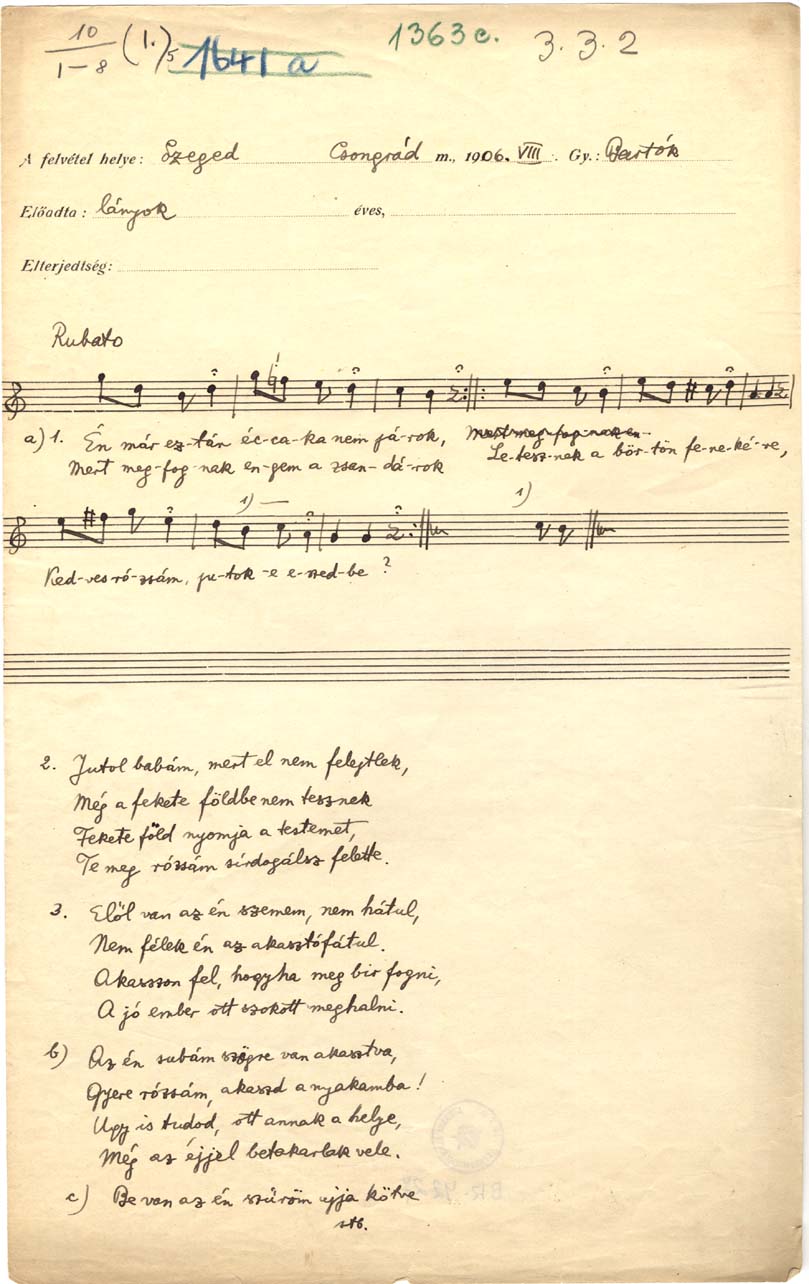 10
1-8 (1.)5 1641 a 1363 c. 3.3.2
A felvétel helye: Szeged Csongrád m., 1906. VIII. Gy.: Bartók
Előadta: lányok éves,
Elterjedtség:
Rubato
a) 1. Én már ez-tán éc-ca-ka nem já-rok, Mert meg-fog-nak en-
Mert meg-fog-nak en-gem a zsan-dá-rok Le-tesz-nek a bör-tön fe-ne-ké-re,
1) 1)
Ked-ves ró-zsám, ju-tok-e e-szed-be?
2. Jutol babám, mert el nem felejtlek,
Még a fekete földbe nem tesznek
Fekete föld nyomja a testemet,
Te meg rózsám sírdogálsz felette.
3. Elől van az én szemem, nem hátul,
Nem félek én az akasztófátul.
Akasszon fel, hogyha meg bir fogni,
A jó ember ott szokott meghalni.
b) Az én subám szögre van akasztva,
Gyere rózsám, akaszd a nyakamba!
Ugy is tudod, ott annak a helye,
Még az éjjel betakarlak vele.
c) Be van az én szűröm ujja kötve
stb.